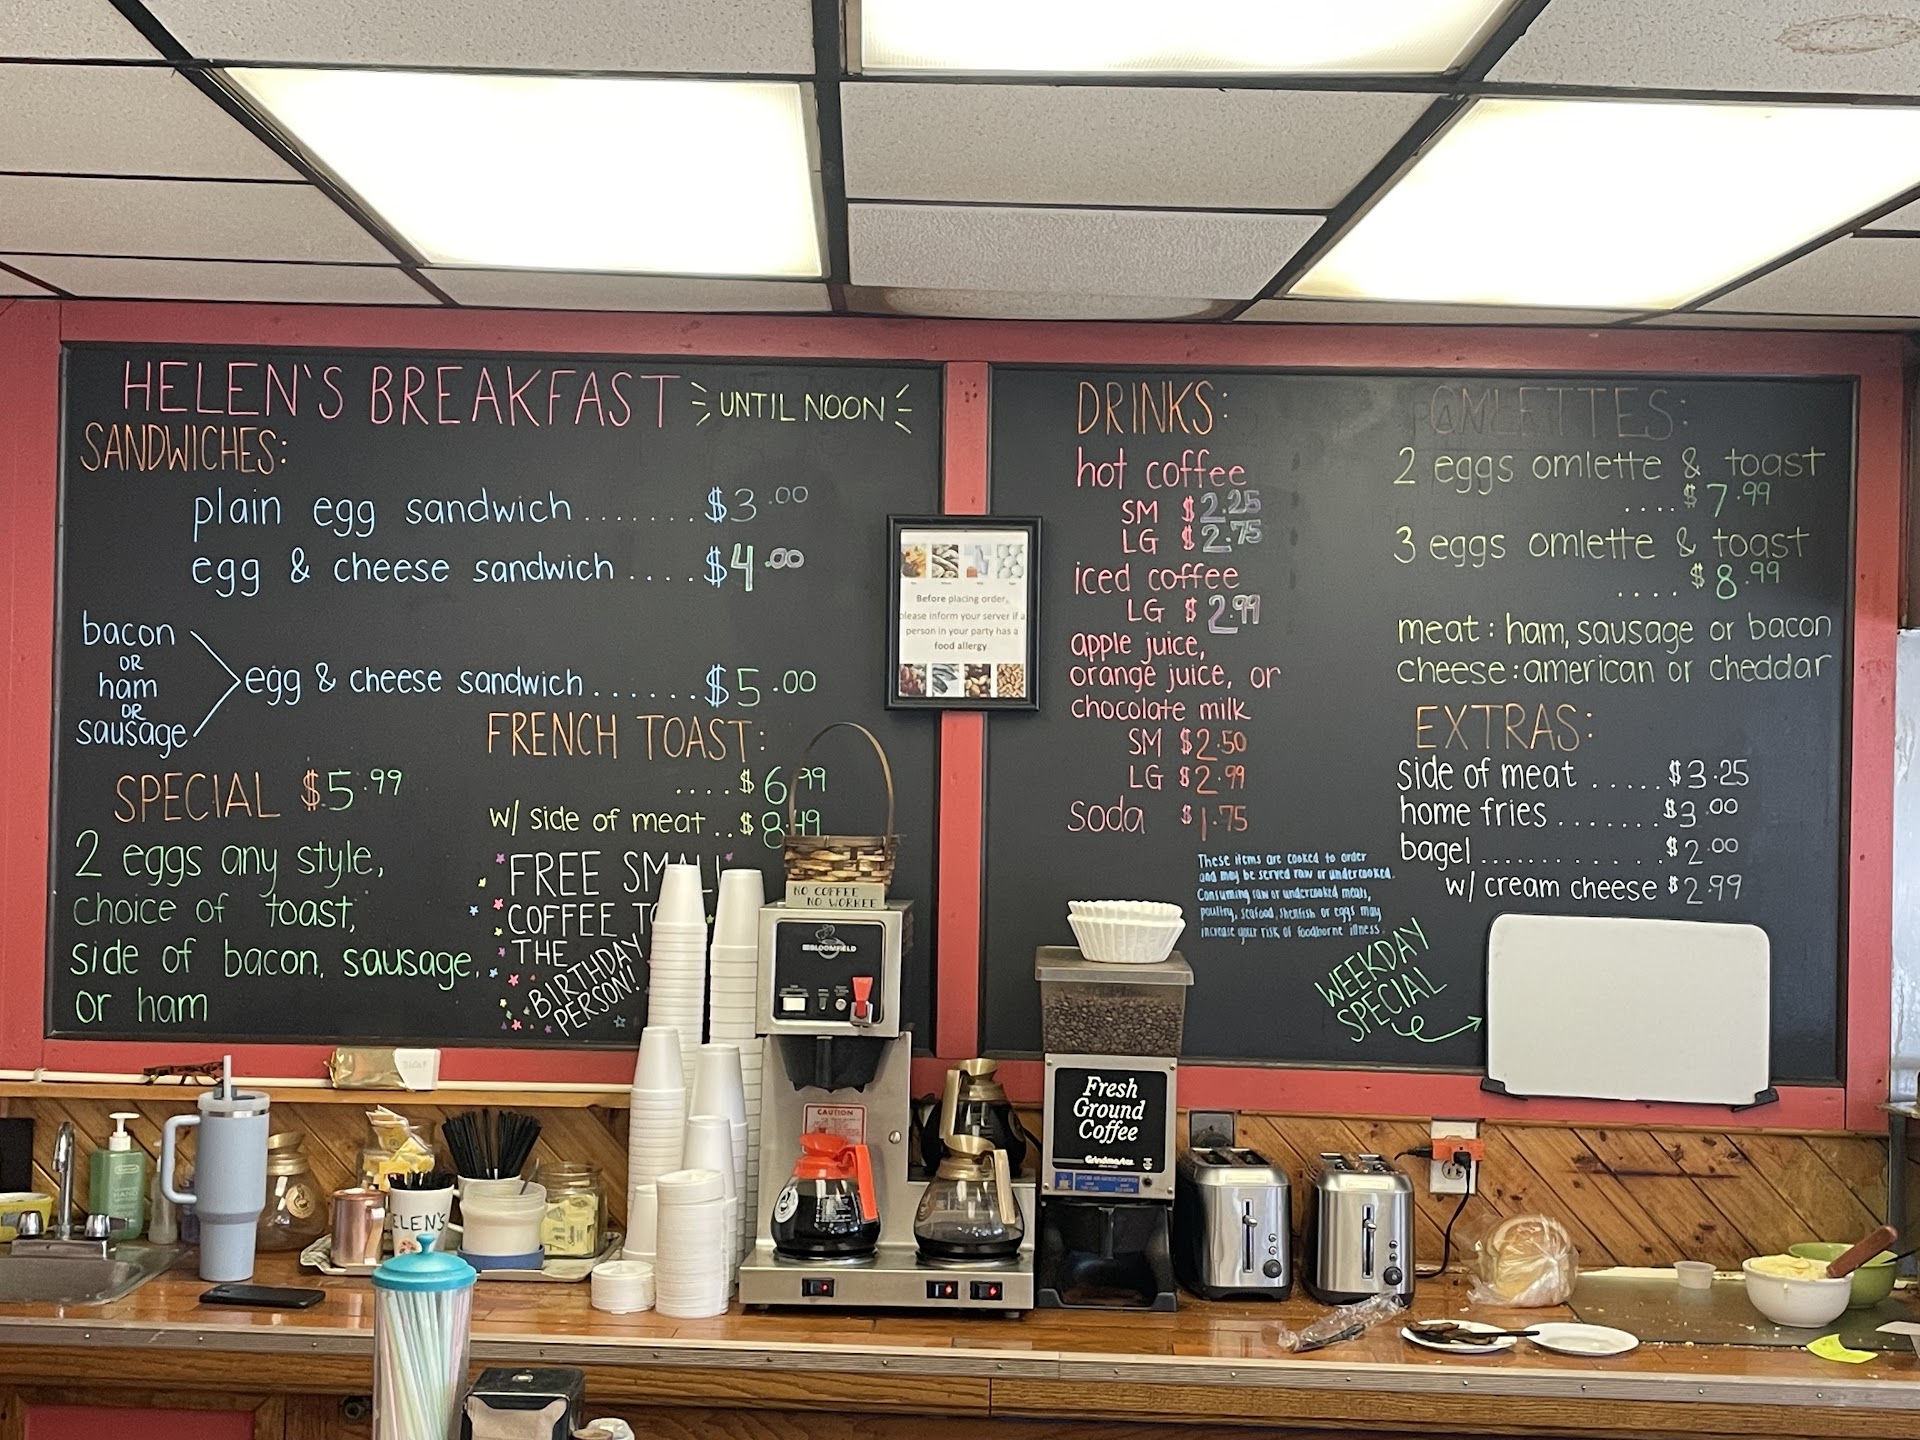 HELEN'S BREAKFAST UNTIL NOON
SANDWICHES:
plain egg sandwich ....... $3.00
egg & cheese sandwich .... $4.00
bacon
OR
ham
OR
sausage
egg & cheese sandwich ...... $5.00
SPECIAL $5.99
2 eggs any style,
choice of toast,
side of bacon, sausage,
or ham
FRENCH TOAST:
.... $6.99
w/ side of meat .. $8.49
FREE SMALL
COFFEE TO
THE
BIRTHDAY
PERSON!
NO COFFEE
NO WORKEE
BLOOMFIELD
CAUTION
Before placing order,
please inform your server if a
person in your party has a
food allergy.
DRINKS:
hot coffee
SM $2.25
LG $2.75
iced coffee
LG $2.99
apple juice,
orange juice, or
chocolate milk
SM $2.50
LG $2.99
soda $1.75
These items are cooked to order
and may be served raw or undercooked.
Consuming raw or undercooked meats,
poultry, seafood, shellfish or eggs may
increase your risk of foodborne illness.
OMLETTES:
2 eggs omlette & toast
.... $7.99
3 eggs omlette & toast
.... $8.99
meat: ham, sausage or bacon
cheese: american or cheddar
EXTRAS:
side of meat ..... $3.25
home fries ....... $3.00
bagel ............ $2.00
w/ cream cheese $2.99
WEEKDAY
SPECIAL
Fresh
Ground
Coffee
Grindmaster
HELEN'S